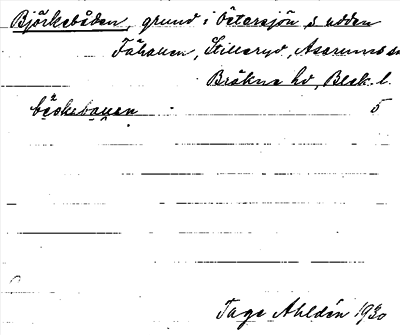 Björkebåden, grund i Östersjön s udden
Fåhallen, Stilleryd, Asarums sn
Bräkne hd, Blek. l.
bẹ̈ŗkebạụen 5
Tage Ahldén 1930